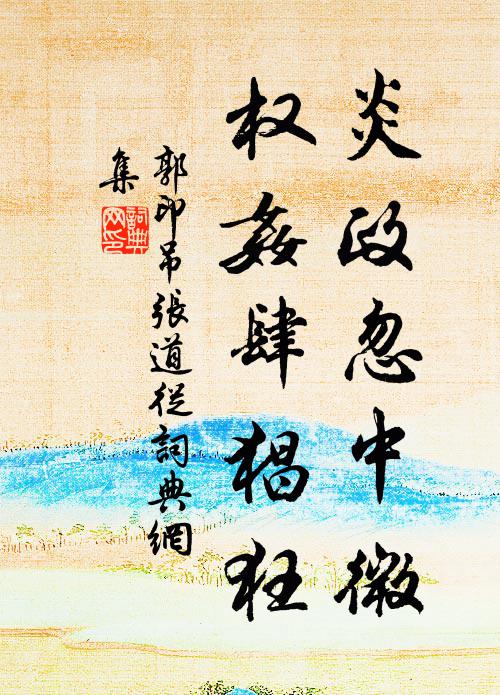 炎政忽中微
权姦肆猖狂
郭印吊張道從詞典網
集
詞典
网印